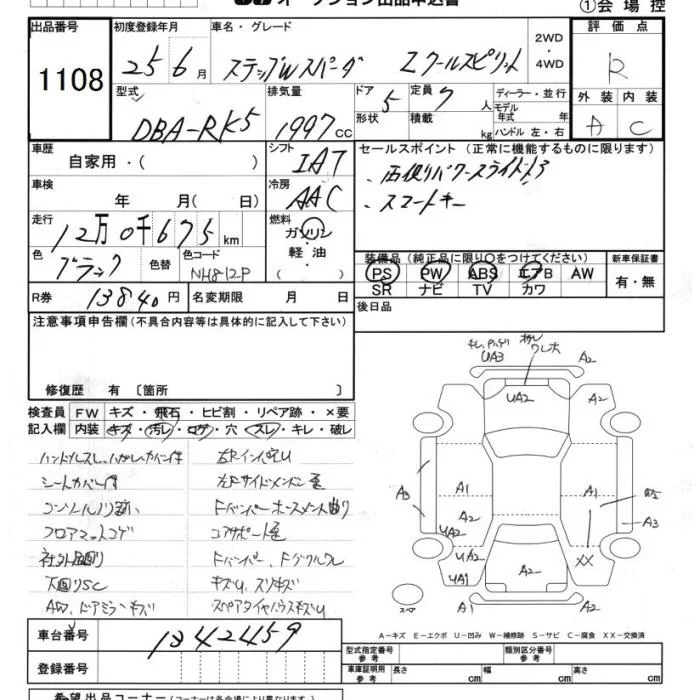 オークション出品申込書
①会場控
出品番号 初度登録年月 車名・グレード 2WD ・ 4WD 評価点
1108 25 6月 ステップWスパーダ Zクールスピリット R
型式 排気量 ドア 5 定員 7 人 ディーラー・並行 外装 内装
DBA-RK5 1997 CC 形状 積載 kg モデル年式 年式 ハンドル 左・右 A C
車歴 シフト セールスポイント (正常に機能するものに限ります)
自家用・( ) IAT ・両側パワースライドドア
車検 冷房 ・スマートキー
年 月 ( 日) AAC
走行 燃料
12万0千675km ガソリン
色 色替 色コード 軽・油 装備品 (純正品に限り○をつけてください) 新車保証書
ブラック NH812P PS PW ABS エアB AW 有・無
SR ナビ TV カワ
R券 13840円 名変期限 月 日 後日品
注意事項申告欄 (不具合内容等は具体的に記入して下さい)
修復歴 有 〔箇所 〕
検査員 FW キズ・飛石・ヒビ割・リペア跡・×要
記入欄 内装 キズ・汚レ・コゲ・穴・スレ・キレ・破レ
ハンドルスレ、ハガレ、カバー付
シートカバー付
フロアマットコゲ コアサポート歪
社外品回り Fバンパー、Fグリルワレ
下回りSC キズU、スリキズ
AW、ドアミラーキズ スペアタイヤハウスキズU
UA3 ワレ大 A2
UA2 A2
A3 A1 A1 A3
A2
UA2
UA2 XX
UA1 A2 A2
スペア A1 A2
A-キズ E-エクボ U-凹み W-補修跡 S-サビ C-腐食 XX-交換済
車台番号 1342459
登録番号
型式指定番号 参考 類別区分番号 参考
車庫証明用 参考 長さ cm 幅 cm 高さ cm
希望出品コーナー